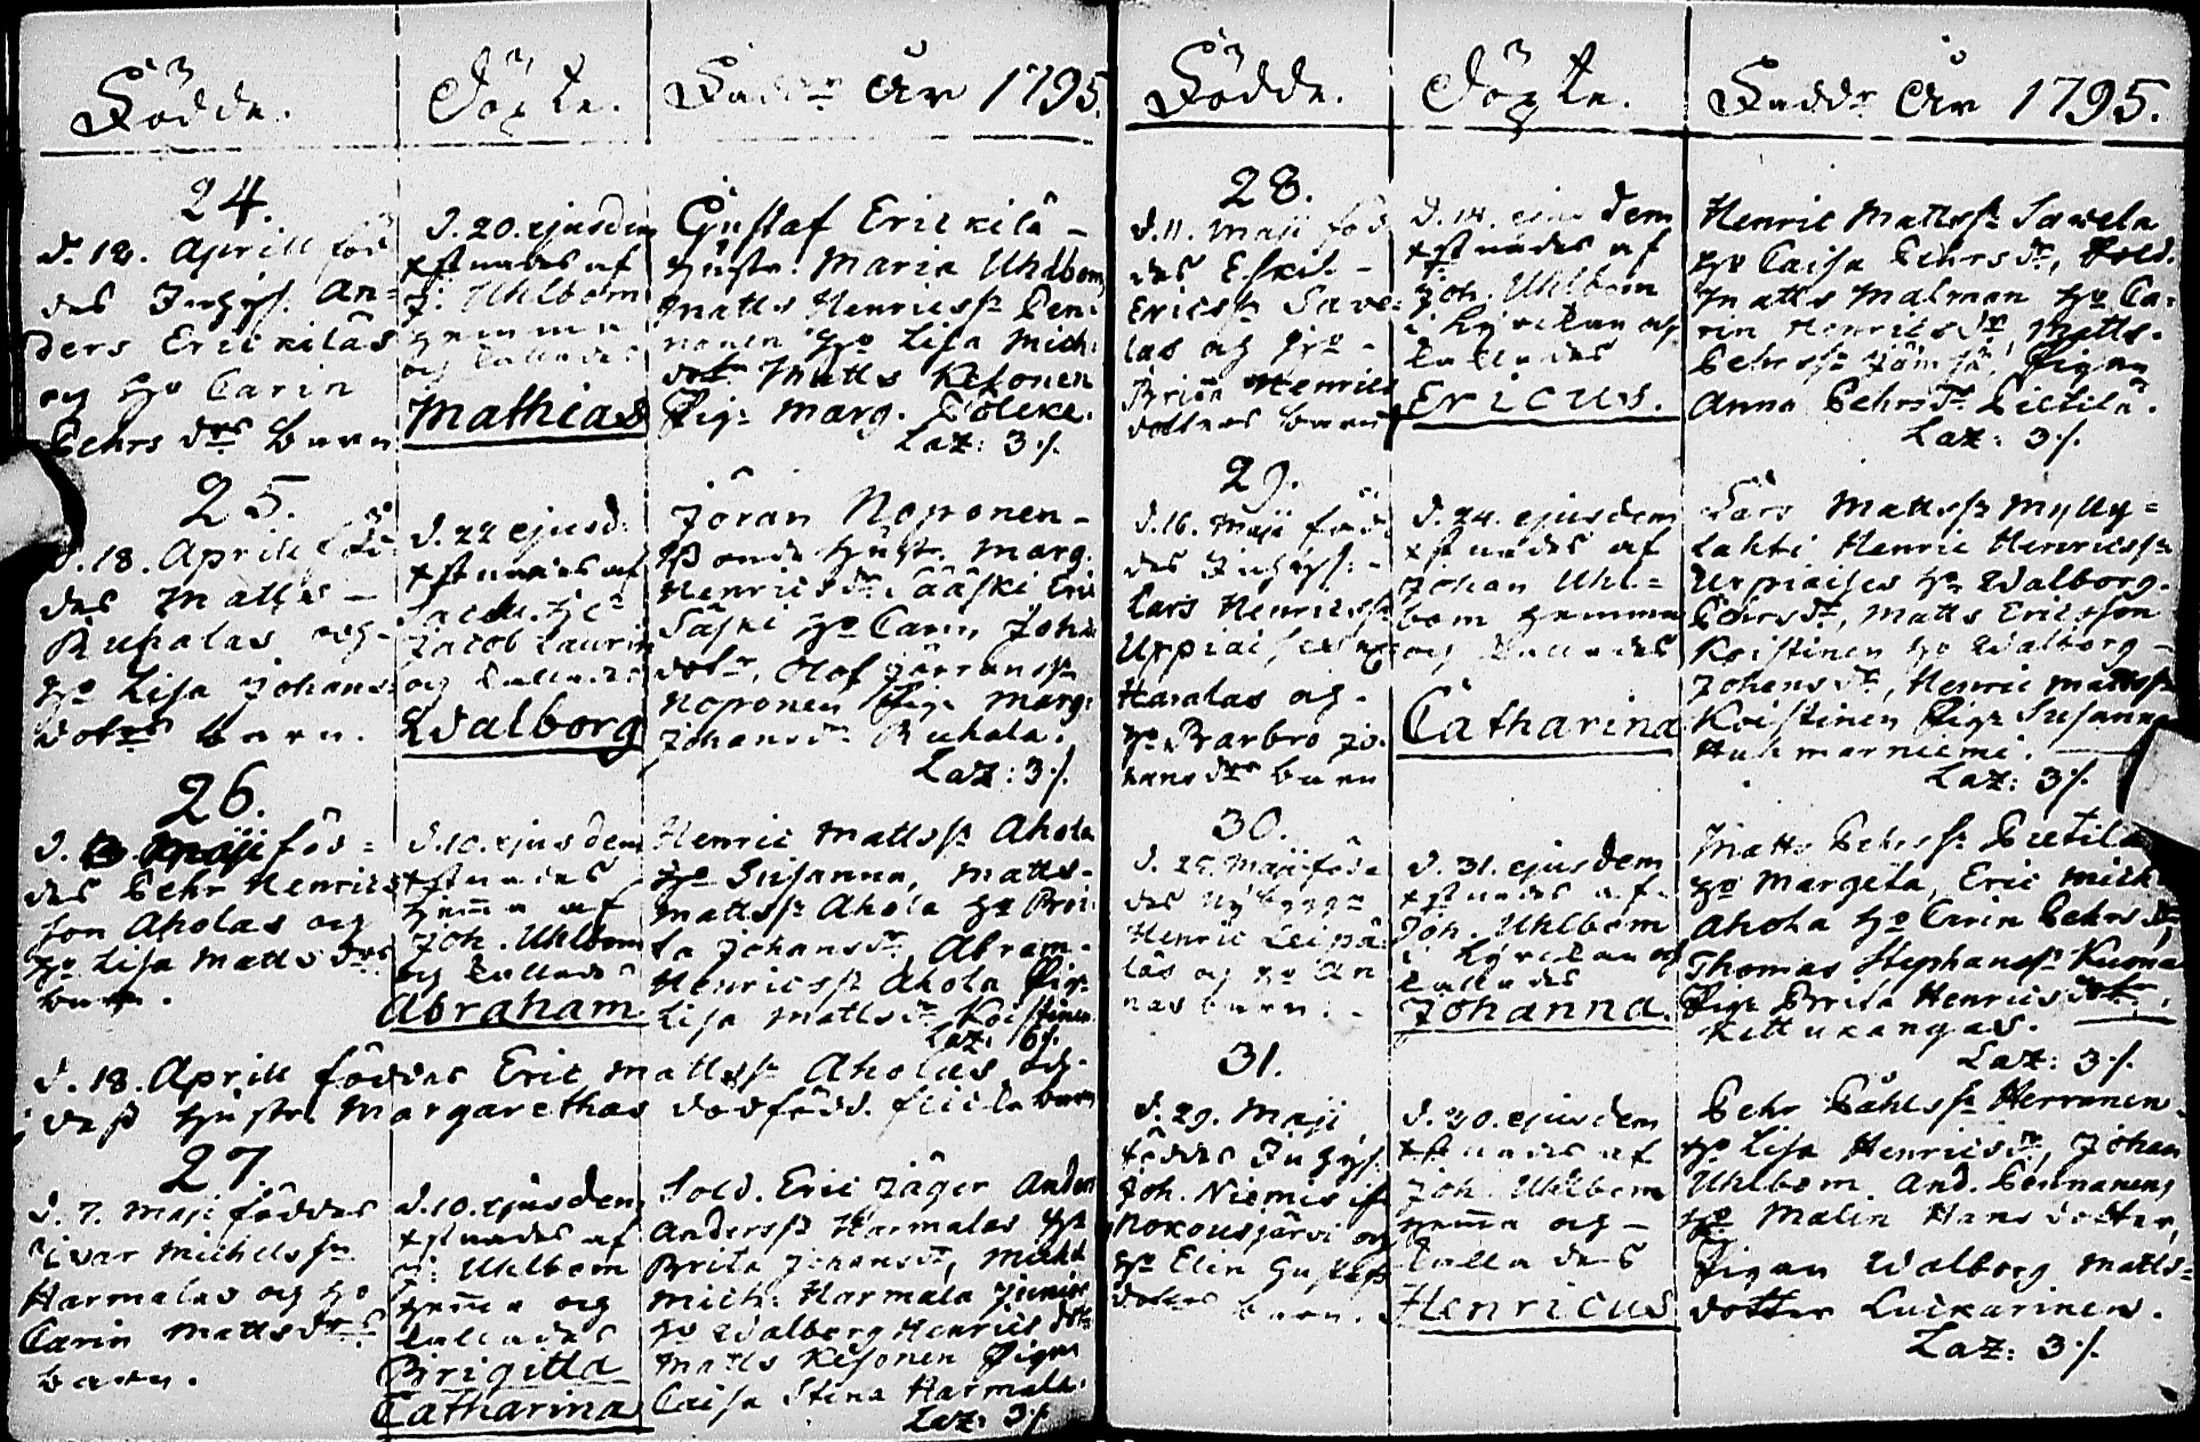 Födde.
Döpte.
Faddr År 1795.
24.
d. 12. Aprill föd
des Inhys. An=
ders Erickiläs
og Ho Carin
Pehrs drs barn
d. 20. ejusdem
xstnades af
J. Uhlbom
hemma
og kallades
Mathias
Gustaf Erickilä -
Hustr. Maria Uhlbom
Matts Henricsn Pen-
nonen Ho Lisa Mich:
dotr Matts Kesonen
Pig: Marg. Pölcke.
Laz: 3 ⁒
25.
d. 18. Aprill föd
des Matts -
Ruhalas og
Ho Lisa Johans
dotrs barn.
d. 22 ejusd:
xstnades af
Jacob Laurin
og kallades
Walborg
Jöran Noponen -
Hustr. Marg.
Henricsdr Sääski Eric
Säski Ho Carin Johans
dotr, Olof Jörransn
Noponen Pig. Marg:
Johansdr Ruhala.
Laz: 3 ⁒
26.
d. Maji föd=
des Pehr Henrics
son Aholas og
Ho Lisa Matts drs
barn.
d. 10. ejusdem
xstnades
hema af
Joh. Uhlbom
og kallades
Abraham
Henric Mattssn Ahola
Ho Susanna, Matts -
Mattssn Ahola Ho Bri
ta Johansdr, Abram -
Henricssn Ahola Pig:
Lisa Mattsdr Koistinen
Laz. 6 ⁒
d. 18. Aprill föddes Eric Mattssn Aholas og
dess Hustru Margarethas dödfödd flicko barn
27.
d. 7. Maji föddes
Ivar Michelssn
Harmalas og Ho
Carin Matts drs
barn.
d. 10. ejusdem
xstnades af
J: Uhlbom
hema og
kallades
Brigitta
Catharina
Sold. Eric Jäger Anders
Anderssn Harmalas Ho
Brita Johansdr, Michel
Mich: Harmala junior
Ho Walborg Henrics dotr
Matts Kesonen Pigan
Caisa Stina Harmala.
Laz: 3 ⁒
Födde.
Döpte.
Faddr År 1795.
28.
d. 11. Maji föd
des Eskil -
Ericssn Save=
las og Ho -
Brita Henrics
dotters barn
d. 14. ejusdem
xstnades af
Joh. Uhlbom
i kyrckan og
kallades
Ericus.
Henric Mattssn Sawela
Ho Caisa Pehrsdr, Sold.
Matts Malman Ho Ca=
rin Henricsdr, Matts.
Pehrssn Jämsä, Pigan
Anna Pehrsdr Pietilä.
Laz: 3 ⁒
29.
d. 16. Maji föd
des Inhys: -
Lars Henricssn
Haralas og -
Ho Barbro Jo=
hans drs barn
d. 24. ejusdem
xstnades af
Johan Uhl=
bom hemma
og kallades
Catharina
Lars Mattssn Mylly=
lahti Henric Henricssn
Urpiaises Ho Walborg.
Pehrsdr, Matts Ericsson
Koistinen Ho Walborg -
Johansdr, Henric Mattssn
Koistinen Pig: Susanna
Huhmarniemi.
Laz: 3 ⁒
30.
d. 25. Maji född
des Nybygg:
Henric Leinä
läs og Ho An
nas barn. -
d. 31. ejusdem
xstnades af -
Joh. Uhlbom
i kyrckan og
kallades
Johanna.
Matts Pehrssn Pietilä
Ho Margeta, Eric Mich
Ahola Ho Carin Pehrsdr,
Thomas Stephanssn Kuona
Pig: Brita Henricsdotr.
Kettukangas.
Laz: 3 ⁒
31.
d. 29. Maji
föddes Inhys:
Joh. Niemis if
Nokousjärvi og
Ho Elin Gustafs
dotters barn.
d. 30. ejusdem
xstnades af
Joh. Uhlbom
hema og -
kallades
Henricus
Pehr Påhlssn Herranen -
Ho Lisa Henricsdr, Johan
Uhlbom. And. Pennanens
Ho Malin Hans dotter,
Pigan Walborg Matts=
dotter Luckarinen.
Laz: 3 ⁒